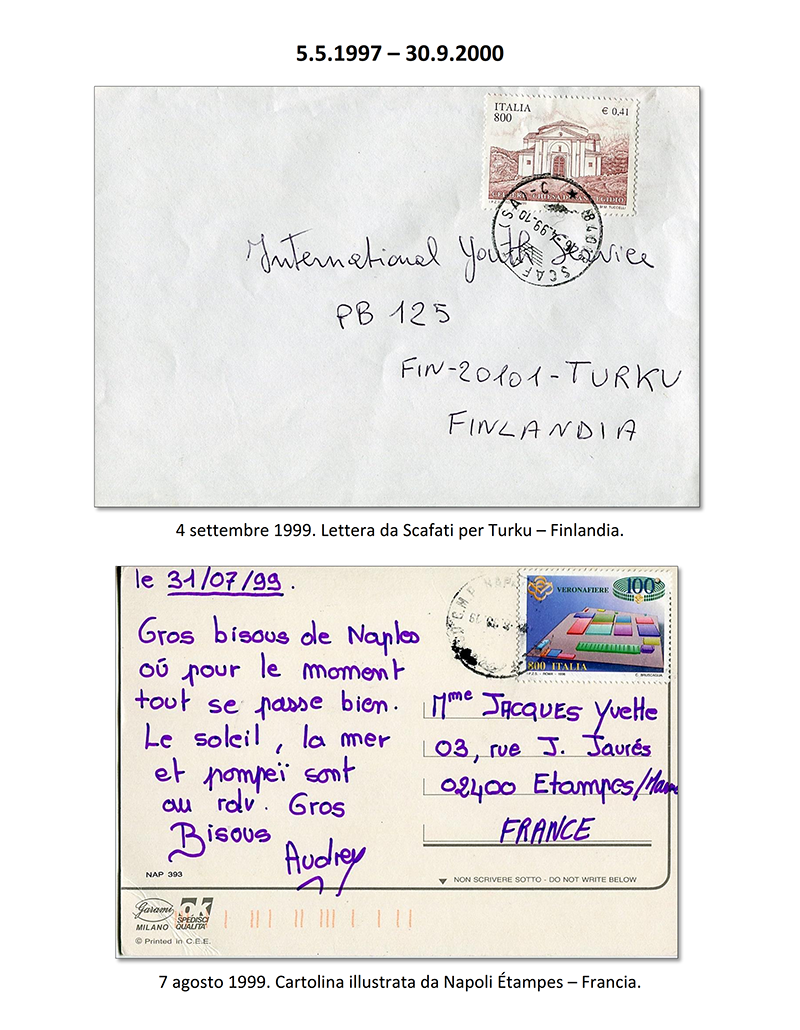 5.5.1997 – 30.9.2000
ITALIA
800
€ 0,41
CHIESA DI SAN EGIDIO
International Youth Service
PB 125
FIN-20101-TURKU
FINLANDIA
4 settembre 1999. Lettera da Scafati per Turku – Finlandia.
le 31/07/99.
Gros bisous de Naples
où pour le moment
tout se passe bien.
Le soleil, la mer
et pompeï sont
au rdv. Gros
Bisous
Audrey
NAP 393
VERONAFIERE
100
800 ITALIA
Mme JACQUES Yvette
03, rue J. Jaurés
02400 Etampes/Marne
FRANCE
NON SCRIVERE SOTTO - DO NOT WRITE BELOW
Garami
MILANO
OK
SPEDISCI
QUALITA'
© Printed in C.E.E.
7 agosto 1999. Cartolina illustrata da Napoli Étampes – Francia.